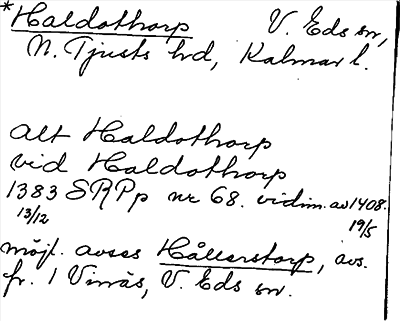 *Haldothorp V. Eds sn,
N. Tjusts hd, Kalmar l.
alt Haldothorp
vid Haldothorp
1383 SRPp nr 68. vidim. av 1408.
13/12 19/5
möjl. avses Hållerstorp, avs.
fr. 1 Vinnäs, V. Eds sn.